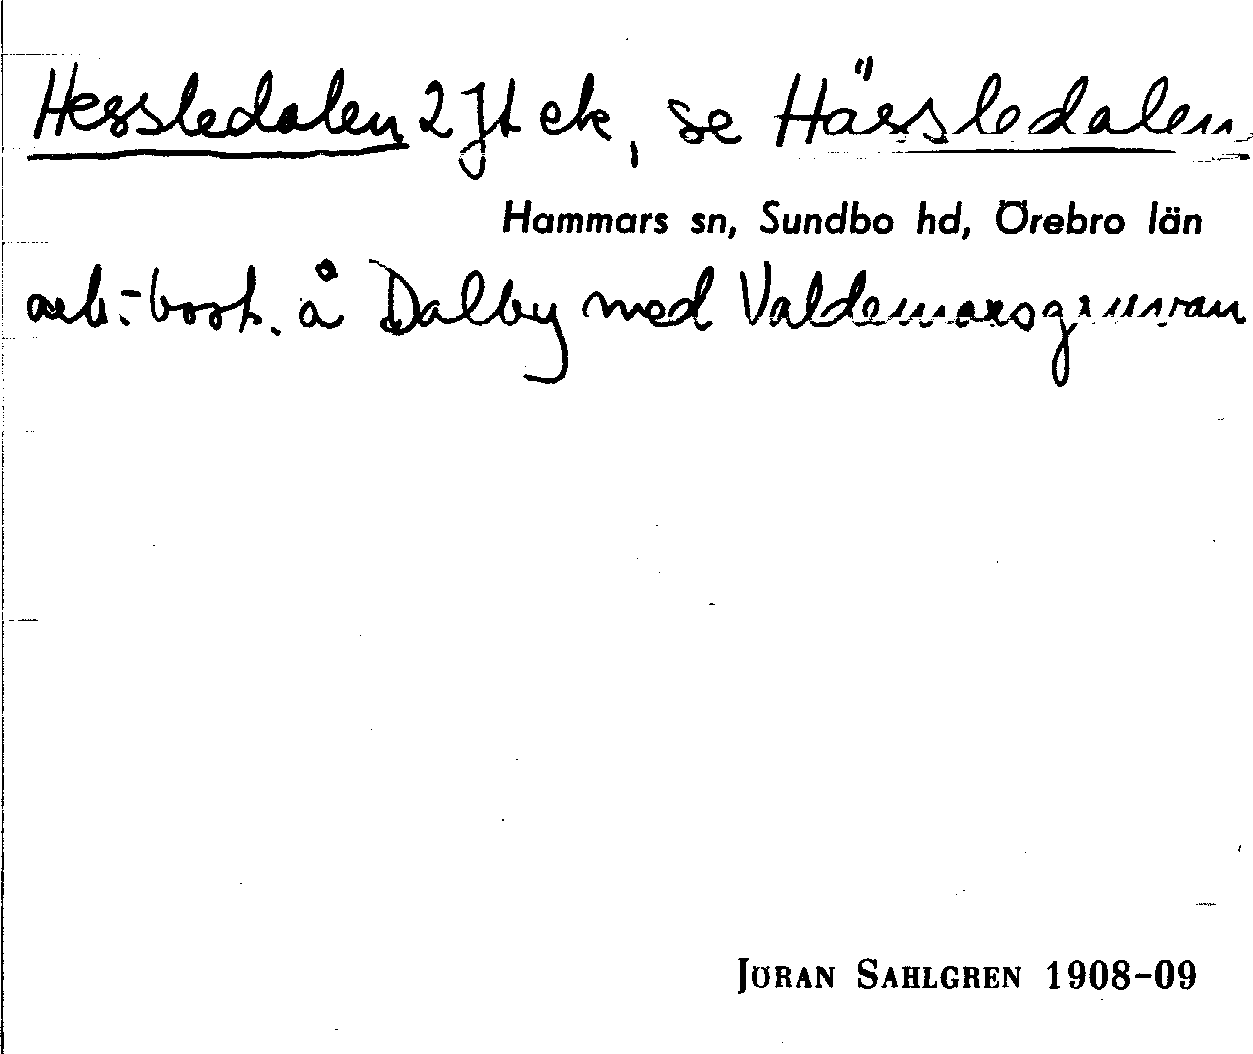 Hessledalen 2 Jt ek, se Hässledalen
Hammars sn, Sundbo hd, Örebro län
arb.-bost. å Dalby med Valdemarsgruvan
JÖRAN SAHLGREN 1908-09